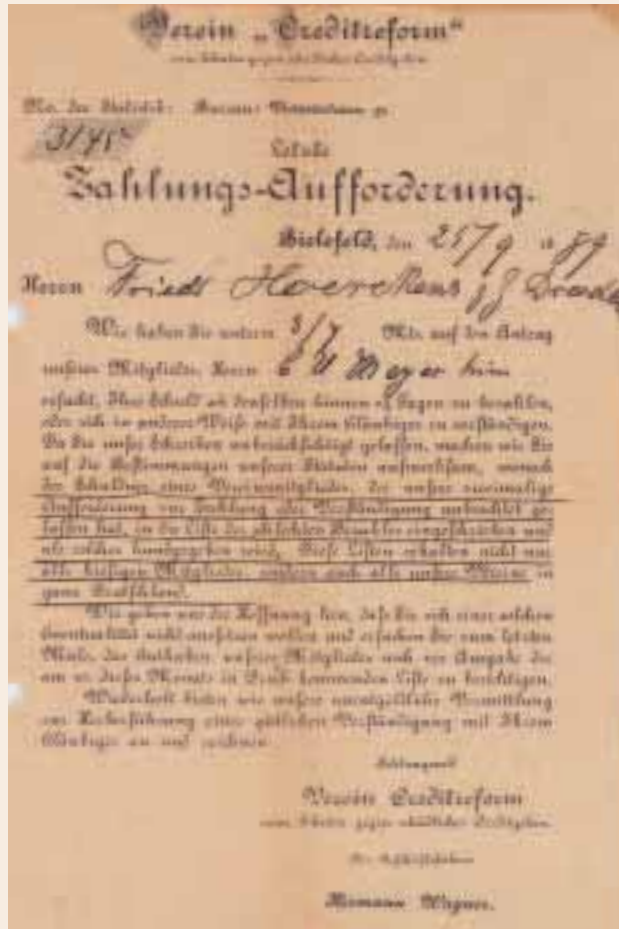 Verein „Creditreform“
zum Schutze gegen schädliches Creditgeben
No. der Statistik: Bureau:
3145
Letzte
Zahlungs-Aufforderung.
Bielefeld, den 25/9 18 89
Herrn Friedr
Wir haben Sie unterm 3/7 Mts. auf den Antrag
unseres Mitgliedes, Herrn Meyer hier
ersucht, Ihre Schuld an denselben binnen Tagen zu bezahlen,
oder sich in anderer Weise mit Ihrem Gläubiger zu verständigen.
Da Sie unser Schreiben unberücksichtigt gelassen, machen wir Sie
auf die Bestimmungen unserer Statuten aufmerksam, wonach
der Schuldner eines Vereinsmitgliedes, der unsere zweimalige
Aufforderung zur Zahlung oder Verständigung unbeachtet ge-
lassen hat, in die Liste der schlechten Bezahler eingeschrieben und
als solcher kundgegeben wird. Diese Listen erhalten nicht nur
alle hiesigen Mitglieder, sondern auch alle unsere Vereine in
ganz Deutschland.
Wir geben uns der Hoffnung hin, daß Sie sich einer solchen
Eventualität nicht aussetzen wollen und ersuchen Sie zum letzten
Male, das Guthaben unseres Mitgliedes noch vor Ausgabe der
am dieses Monats in Druck kommenden Liste zu berichtigen.
Wiederholt bieten wir unsere unentgeltliche Vermittlung
zur Herbeiführung einer gütlichen Verständigung mit Ihrem
Gläubiger an und zeichnen
Achtungsvoll
Verein Creditreform
zum Schutze gegen schädliches Creditgeben.
Der Geschäftsführer
Hermann Wagner.